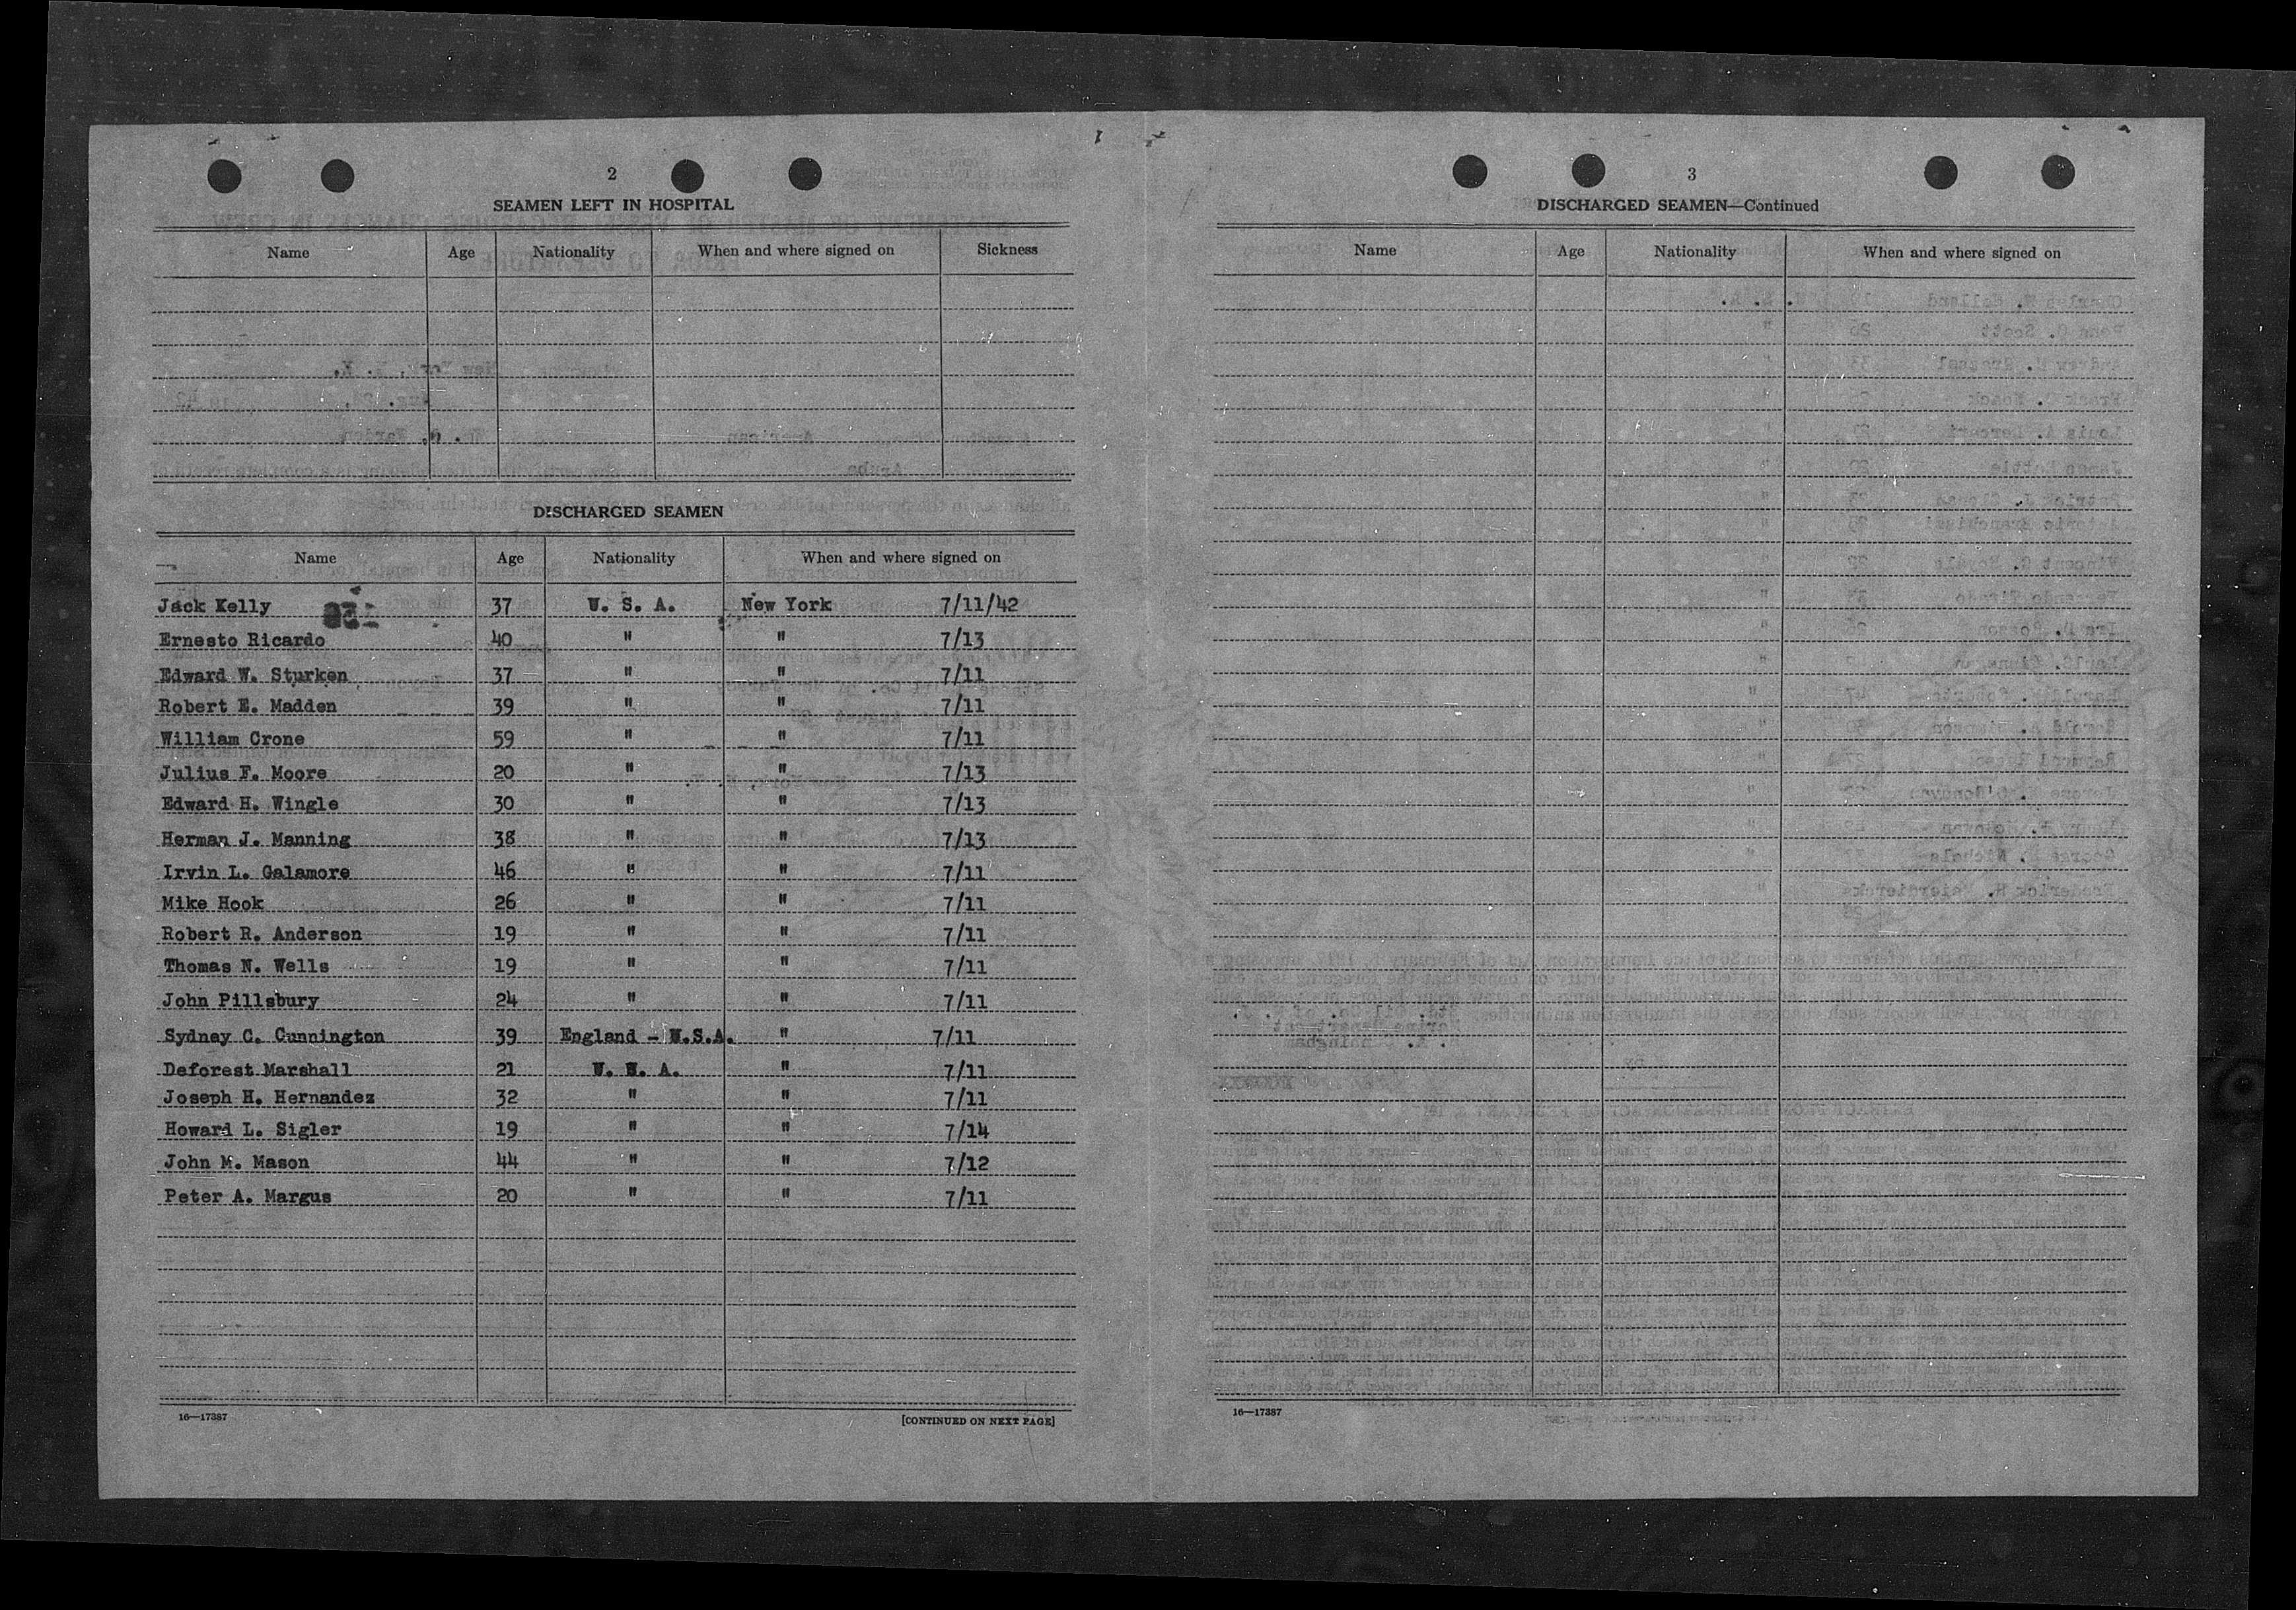 2
SEAMEN LEFT IN HOSPITAL
Name Age Nationality When and where signed on Sickness
DISCHARGED SEAMEN
Name Age Nationality When and where signed on
Jack Kelly 37 U. S. A. New York 7/11/42
Ernesto Ricardo 40 " " 7/13
Edward W. Sturken 37 " " 7/11
Robert E. Madden 39 " " 7/11
William Crone 59 " " 7/11
Julius F. Moore 20 " " 7/13
Edward H. Wingle 30 " " 7/13
Herman J. Manning 38 " " 7/13
Irvin L. Galamore 46 " " 7/11
Mike Hook 26 " " 7/11
Robert R. Anderson 19 " " 7/11
Thomas N. Wells 19 " " 7/11
John Pillsbury 24 " " 7/11
Sydney C. Cunnington 39 England - U.S.A. " 7/11
Deforest Marshall 21 U. S. A. " 7/11
Joseph H. Hernandez 32 " " 7/11
Howard L. Sigler 19 " " 7/14
John M. Mason 44 " " 7/12
Peter A. Margus 20 " " 7/11
16—17387 [CONTINUED ON NEXT PAGE]
3
DISCHARGED SEAMEN—Continued
Name Age Nationality When and where signed on
16—17387